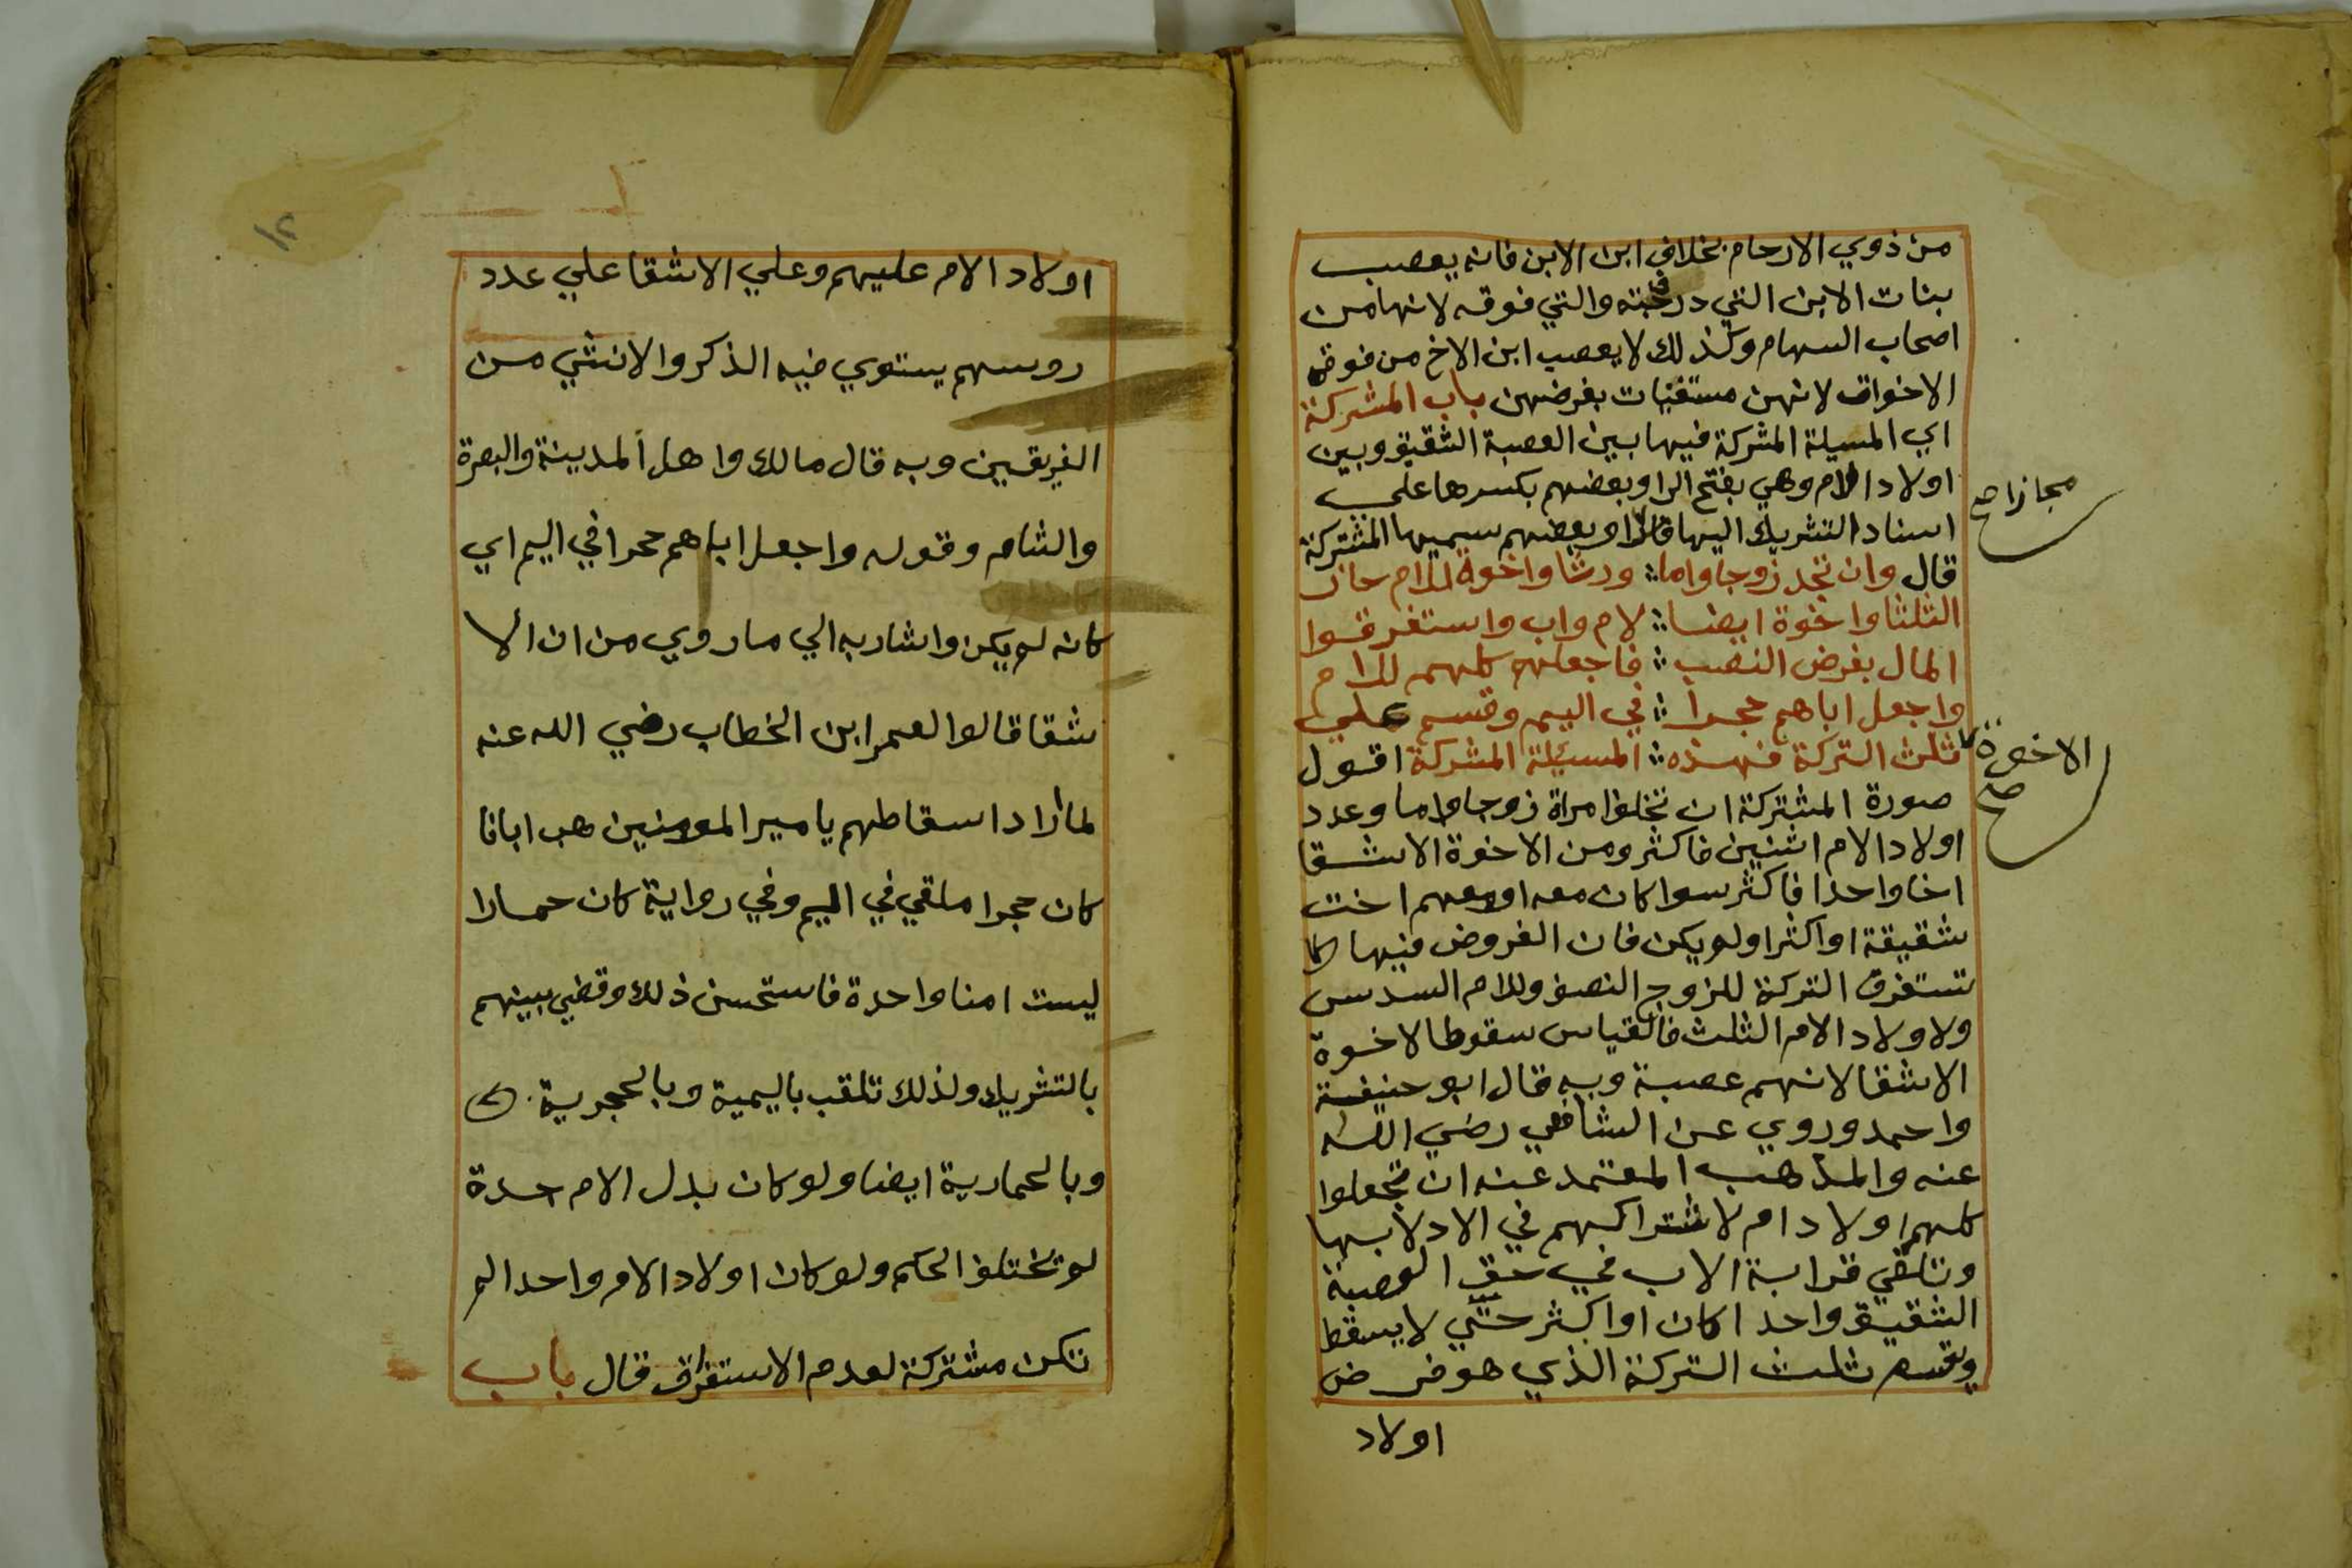 من ذوي الارحام بخلاف ابن الابن فانه يعصب
بنات الابن التي في درجته والتي فوقه لانها من
اصحاب السهام وكذلك لا يعصب ابن الاخ من فوقه
الاخوات لانهن مستغنيات بفرضهن باب المشركة
اي المسيلة المشركة فيها بين العصبة الشقيق وبين
اولاد الام وهي بفتح الرا وبعضهم بكسرها علي
اسناد التشريك اليها مجازا وبعضهم سميها المشتركة
مجازا صح
قال وان تجد زوجا واما ورثا واخوة للام حازوا
الثلثا واخوة ايضا لام واب واستغرقوا
المال بفرض النصب فاجعلهم كلهم للام
واجعل اباهم حجرا في اليم وقسم علي
ثلث التركة فهذه المسئلة المشركة اقول
الاخوة
صح
صورة المشتركة ان تخلف امراة زوجا واما وعدد
اولاد الام اثنين فاكثر ومن الاخوة الاشقا
اخا واحدا فاكثر سوا كان معه او معهم اخت
شقيقة او اكثر او لم يكن فان الفروض فيها
تستغرق التركة للزوج النصف وللام السدس
ولاولاد الام الثلث فالقياس سقوط الاخوة
الاشقا لانهم عصبة وبه قال ابو حنيفة
واحمد وروي عن الشافعي رضي الله
عنه والمذهب المعتمد عنه ان تجعلوا
كلهم اولاد ام لاشتراكهم في الادلا بها
وتلقي قرابة الاب في حق العصبة
الشقيق واحدا كان او اكثر حتي لا يسقط
ويقسم ثلث التركة الذي هو فرض
اولاد
١٢
اولاد الام عليهم وعلي الاشقا علي عدد
روسهم يستوي فيه الذكر والانثي من
الفريقين وبه قال مالك واهل المدينة والبصرة
والشام وقوله واجعل اباهم حجرا في اليم اي
كانه لم يكن واشار به الي ما روي من ان الا
شقا قالوا لعمر ابن الخطاب رضي الله عنه
لما اراد اسقاطهم يا مير المومنين هب ابانا
كان حجرا ملقي في اليم وفي رواية كان حمارا
ليست امنا واحدة فاستحسن ذلك وقضي بينهم
بالتشريك ولذلك تلقب باليمية وبالحجرية
وبالحمارية ايضا ولو كان بدل الام جدة
لم تختلف الحكم ولو كان اولاد الام واحدا لم
تكن مشتركة لعدم الاستغراق قال باب